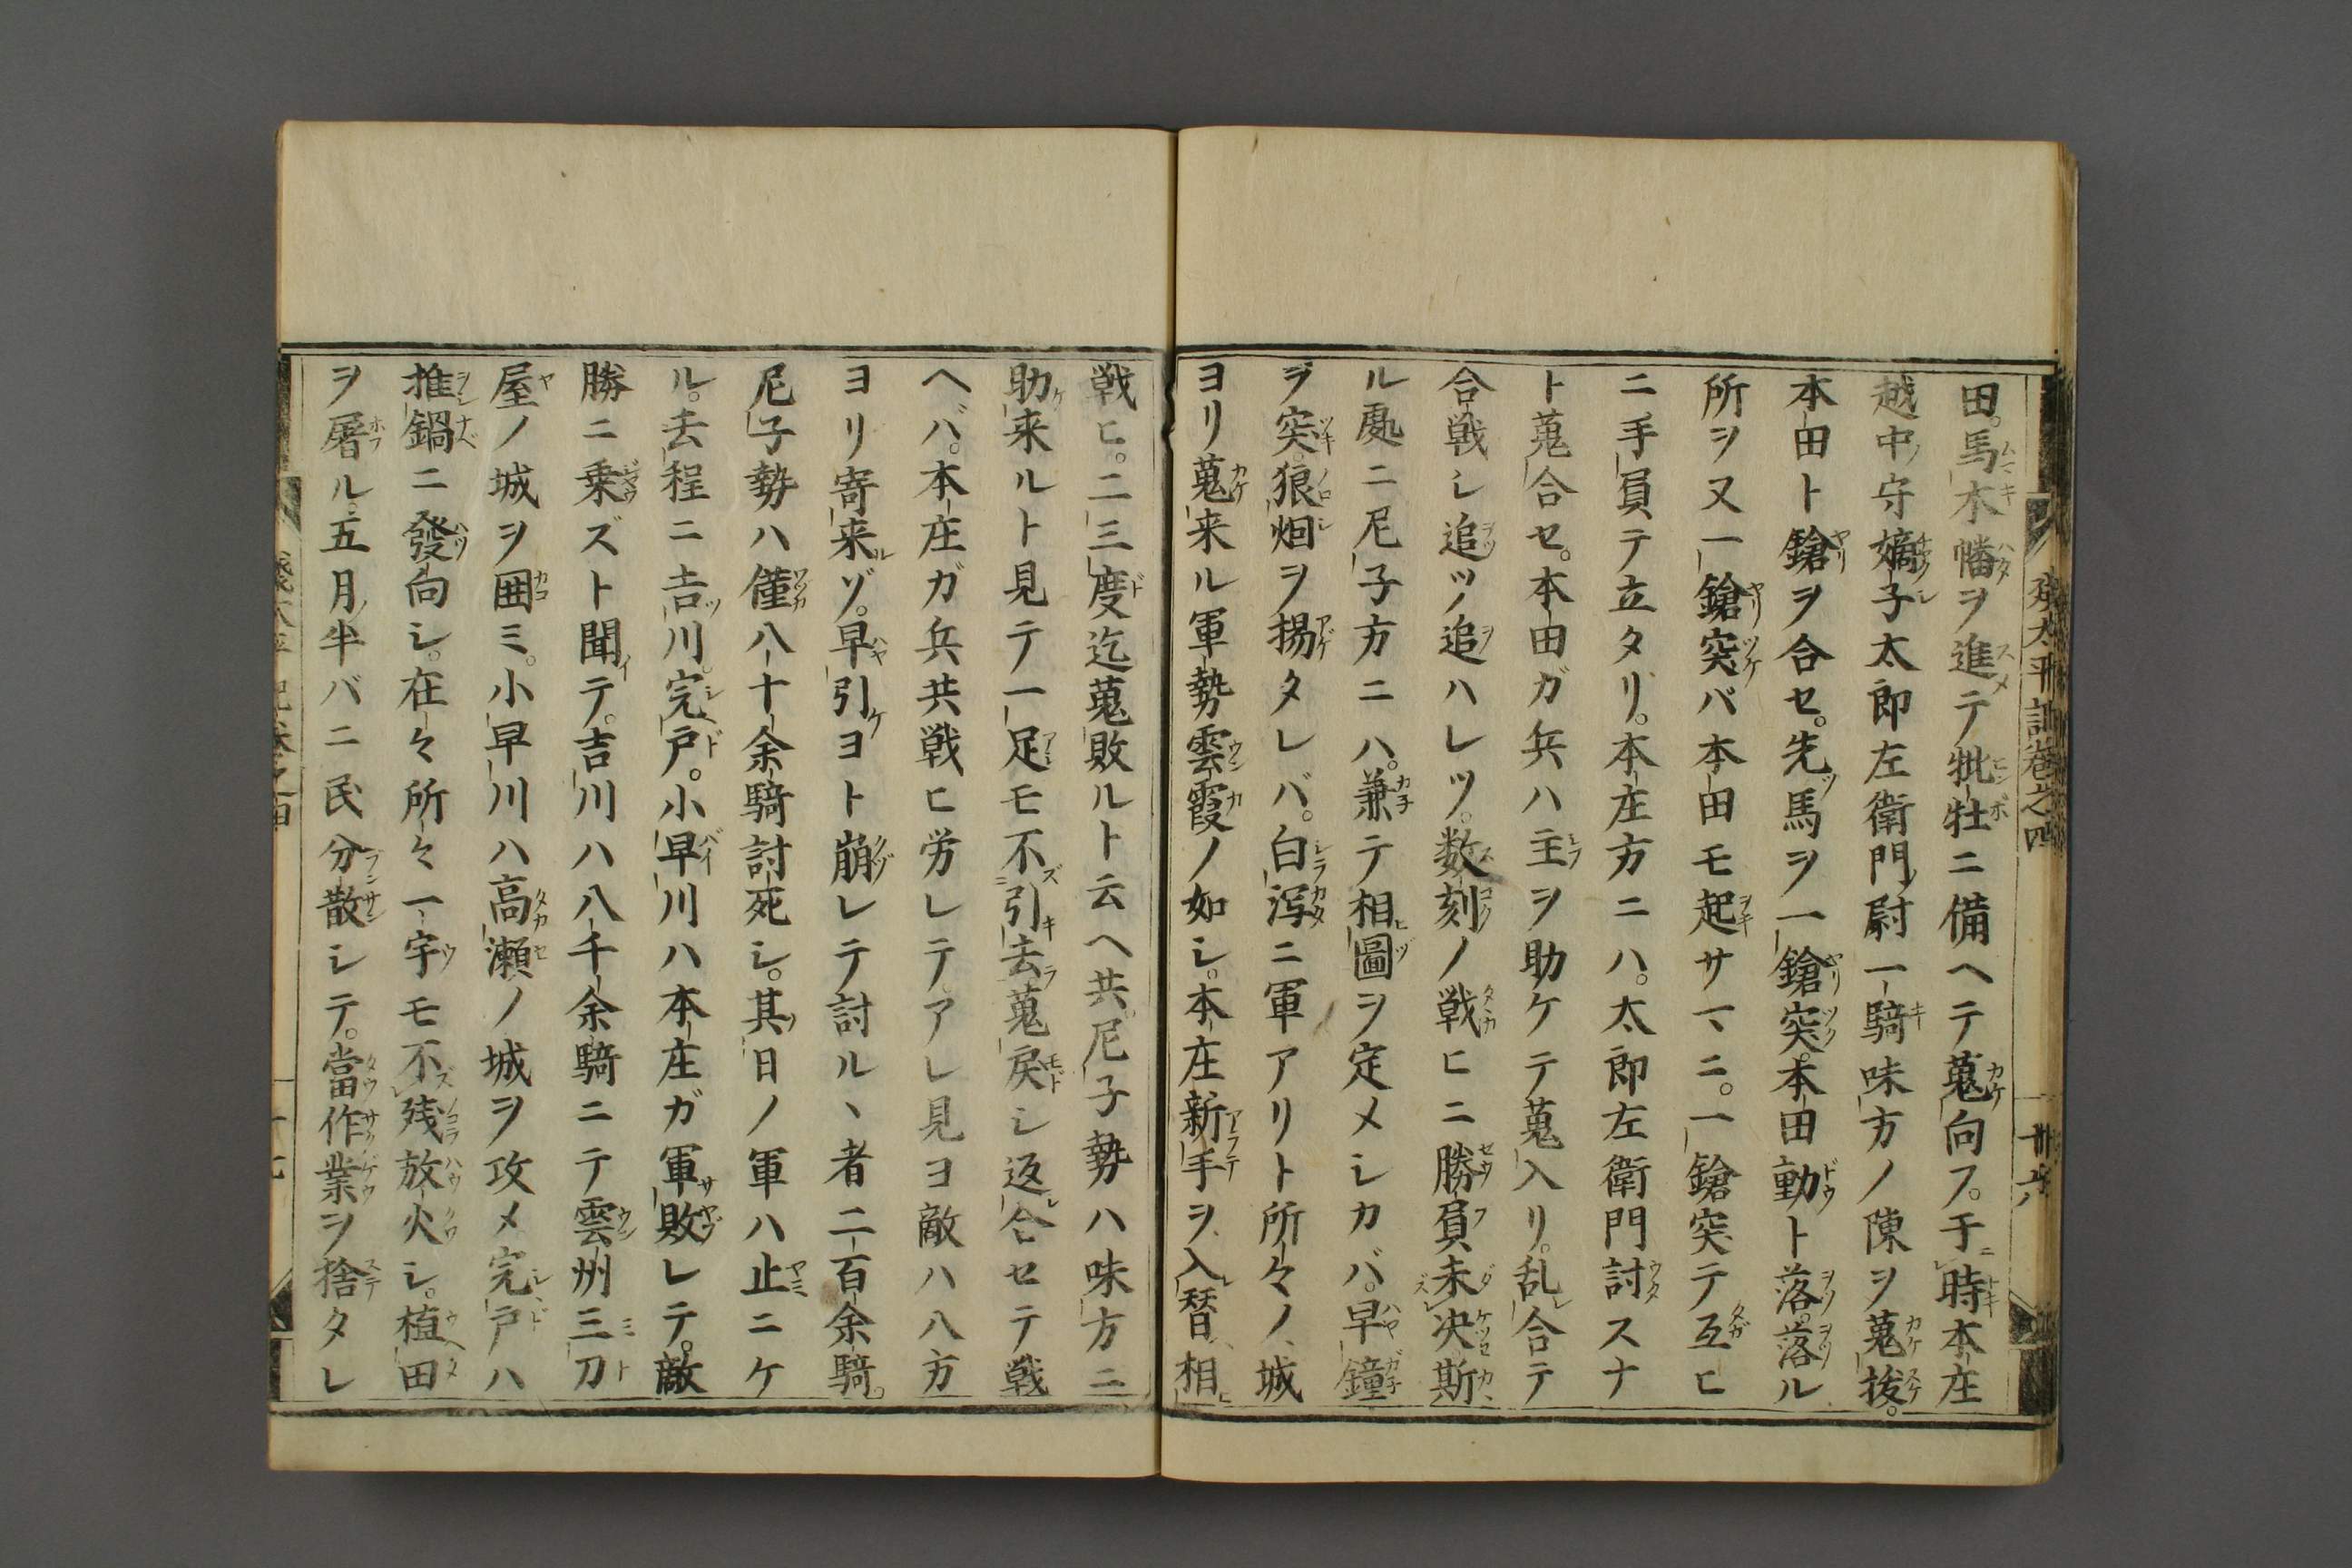 残太平記巻之四
卅六
田。馬木幡ヲ進テ牝牡ニ備ヘテ蒐向フ。于時本庄
越中守嫡子太郎左衛門尉一騎味方ノ陳ヲ蒐抜。
本田ト鎗ヲ合セ。先馬ヲ一鎗突。本田動ト落。落ル
所ヲ又一鎗突バ本田モ起サマニ。一鎗突テ互ヒ
ニ手員テ立タリ。本庄方ニハ。太郎左衛門討スナ
ト蒐合セ。本田ガ兵ハ主ヲ助ケテ蒐入リ。乱合テ
合戦シ追ツ追ハレツ。数刻ノ戦ヒニ勝員未决斯
ル處ニ尼子方ニハ。兼テ相圖ヲ定メシカバ。早鐘
ヲ突。狼烟ヲ揚タレバ。白潟ニ軍アリト所々ノ城
ヨリ蒐来ル軍勢雲霞ノ如シ。本庄新手ヲ入替、相
戦ヒ。二三度迄蒐敗ルト云ヘ共。尼子勢ハ味方ニ
助来ルト見テ一足モ不引去蒐戻シ返合セテ戦
ヘバ。本庄ガ兵共戦ヒ労レテアレ見ヨ敵ハ八方
ヨリ寄来ルゾ。早引ケヨト崩レテ討ルヽ者二百余騎。
尼子勢ハ僅八十余騎討死シ。其日ノ軍ハ止ニケ
ル。去程ニ吉川。完戸。小早川ハ本庄ガ軍敗レテ。敵
勝ニ乗ズト聞テ。吉川ハ八千余騎ニテ雲州三刀
屋ノ城ヲ囲ミ。小早川ハ高瀬ノ城ヲ攻メ完戸ハ
推鍋ニ發向シ。在々所々一宇モ不残放火シ。植田
ヲ屠ル。五月半バニ民分散シテ。當作業ヲ捨タレ